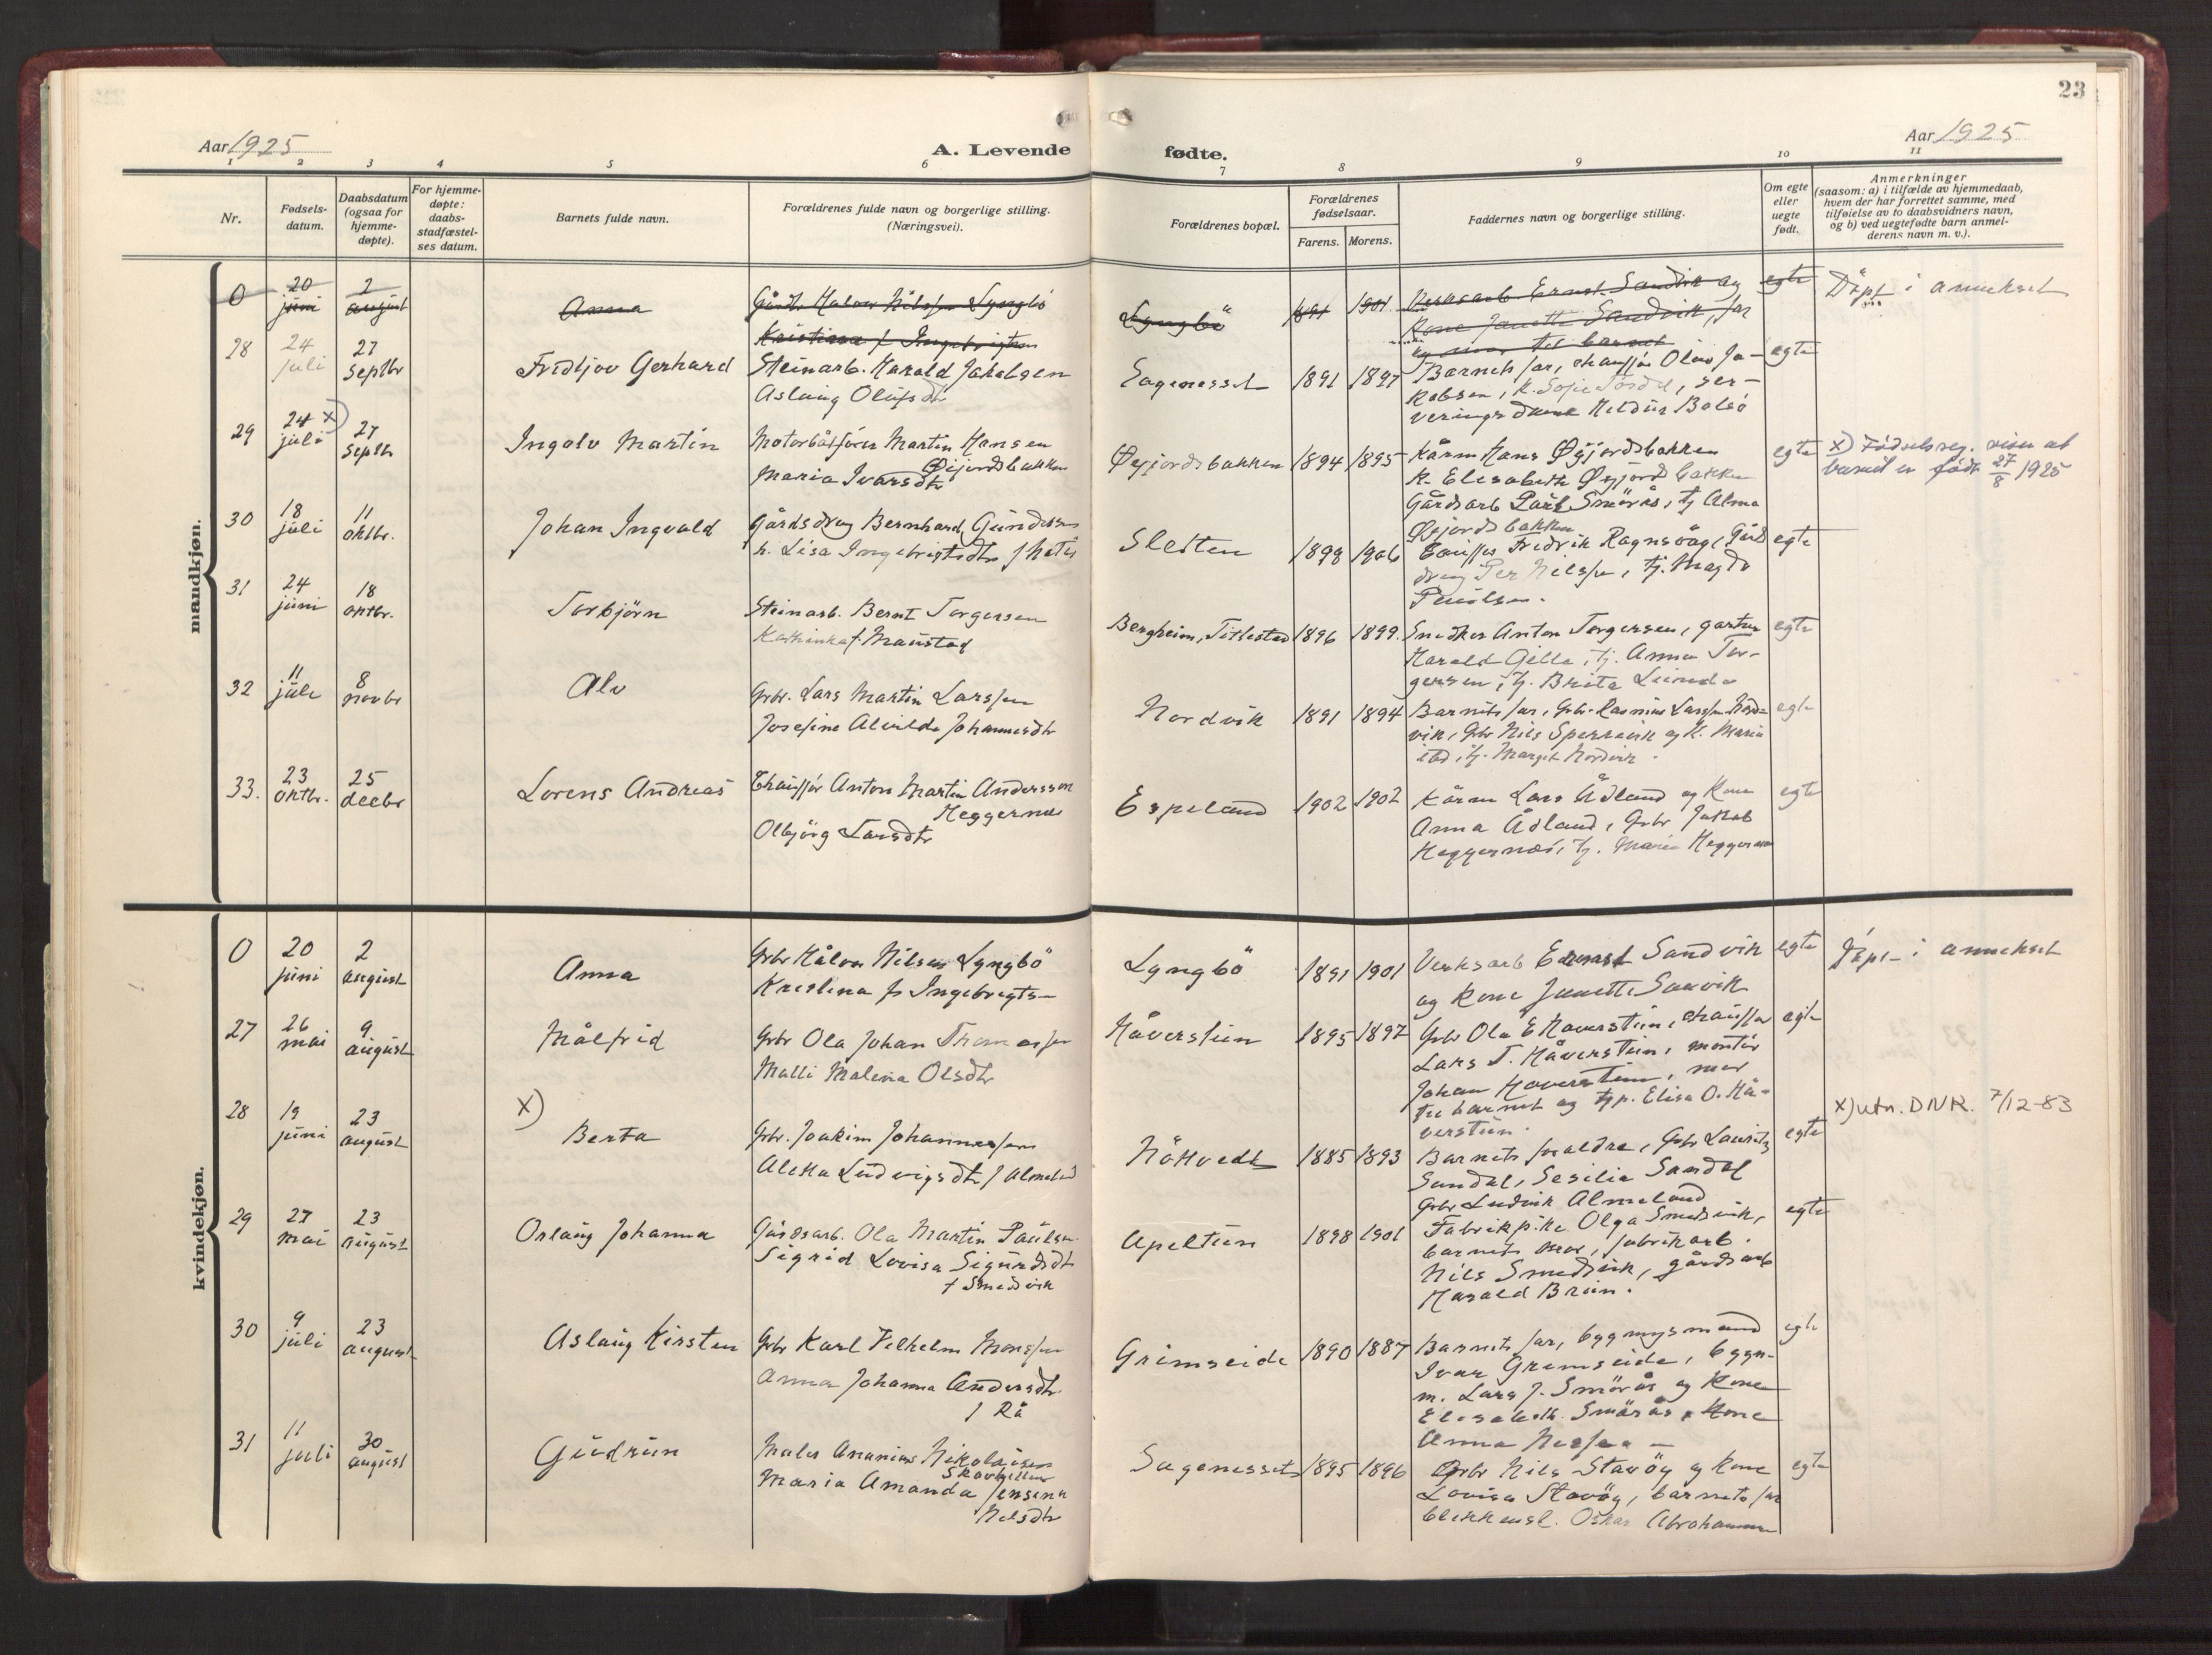 23
Aar 1925
A. Levende
fødte.
Aar 1925
1 2 3 4 5 6 7 8 9 10 11
Nr.
Fødsels-
datum.
Daabsdatum
(ogsaa for
hjemme-
døpte).
For hjemme-
døpte:
daabs-
stadfæstel-
ses datum.
Barnets fulde navn.
Forældrenes fulde navn og borgerlige stilling.
(Næringsvei).
Forældrenes bopæl.
Forældrenes
fødselsaar.
Farens. Morens.
Faddernes navn og borgerlige stilling.
Om egte
eller
uegte
født.
Anmerkninger
(saasom: a) i tilfælde av hjemmedaab,
hvem der har forrettet samme, med
tilføielse av to daabsvidners navn,
og b) ved uegtefødte barn anmel-
derens navn m. v.).
mandkjøn.
0
20
juni
2
august
Anna
Gårdb. Halvor Nilssen Lyngbö
Kristiana f Ingebrigtsen
Lyngbö
1891
1901
Verksarb Ernst Sandvik og
Kone Janette Sandvik, far
og mor til barnet
egte
Döpt i annekset
28
24
juli
27
Septbr
Fridtjov Gerhard
Steinarb. Harald Jakobsen
Aslaug Olufsdtr
Sagenesset
1891
1897
Barnets far, chauffør Olav Ja-
kobsen, K. Sofie, ser-
veringsdame Heldur Bolsö
egte
29
24 x)
juli
27
Septbr
Ingolv Martin
Motorbåtfører Martin Hansen
Øijordsbakken
Maria Ivarsdtr
Øyjordsbakken
1894
1895
Kårm Hans Øyjordsbakken
K. Elisabeth Øyjordsbakken
Gårdsarb Paul Smörås, tj Alma
Øyjordsbakken
egte
x) Fødselsreg. viser at
barnet er født 27/8 1925
30
18
juli
11
oktbr.
Johan Ingvald
Gårdsdreng Bernhard Gundersen
h. Lisa Ingebrigtsdtr f
Sletten
1898
1906
Fredrik Ragnsvåg, Gårds
dreng Per Nilssen, tj. Magda
Paulsen.
egte
31
24
juni
18
optbr.
Torbjörn
Steinarb. Bernt Torgersen
Kathinka f. Maustad
Bergheim, Titlestad
1896
1899.
Snedker Anton Torgersen, gartner
Harald Gille, tj. Anna Tor-
gersen, tj. Brita Lunde
egte
32
11
juli
8
novbr
Alv
Grbr. Lars Martin Larssen
Josefine Alvilde Johannesdtr
Nordvik
1891
1894
Barnets far, Grbr. Rasmus Larssen Nord-
vik, Grbr Nils Sperrevik og K. Maria
ibd, tj. Margit Nordvik.
egte
33.
23
oktbr.
25
decbr
Lorens Andreas
Chauffør Anton Martin Anderssen
Heggernes
Olbjörg Larsdtr
Espeland
1902
1902
Kårm Lars Ådland og Kone
Anna Ådland, Grbr Jakob
Heggernæs, tj. Maria Heggernæs
egte
kvindekjøn.
0
20
juni
2
august
Anna
Grbr Hålvor Nilsen Lyngbö
Kristina f. Ingebrigts-
Lyngbö
1891
1901
Verksarb Ernst Sandvik
og Kone Janette Sandvik
egte
Döpt i annekset
27
26
mai
9
august
Målfrid
Grbr Ola Johan Thomassen
Malli Malena Olsdtr
Håverstein
1895
1897
Grbr Ola E Haverstein, chauffør
Lars T. Håverstein, montör
Johan Haverstein, mor
til barnet og tjp. Elisa O. Hå-
verstein.
egte
28
19
juni
23
august
x)
Berta
Grbr. Joakim Johannessen
Aletta Ludvigsdtr f Almeland
Höttvedt
1885
1893
Barnets foreldre, Grbr Lauritz
Sandal, Sesilia Sandal
Grbr Ludvik Almeland
egte
x) utn. DNR. 7/12-83
29
27
mai
23
august
Oslaug Johanna
Gårdsarb. Ola Martin Paulsen
Sigrid Lovisa Sigurdsdtr
f Smedsvik
Apeltun
1898
1901
Fabrikpike Olga Smedsvik,
barnets mor, fabrikarb.
Nils Smedsvik, gårdsarb
Harald Brun.
egte
30
9
juli
23
august
Aslaug Kirsten
Grbr Karl Vilhelm Monssen
Anna Johanna Andersdtr.
f Rå
Grimseide
1890
1887
Barnets far, bygningsmand
Ivar Grimseide, bygn-
m. Lars J. Smörås og Kone
Elisabeth Smörås, Kone
Anna
egte
31
11
juli
30
august
Gudrun
Maler Ananias Nikolaisen
Maria Amanda Jensena
Nilsdtr
Sagenesset
1895
1896
Grbr Nils Stavöy og Kone
Lovisa Stavöy, barnets far
blikkensl. Oskar Abrahamsen
egte